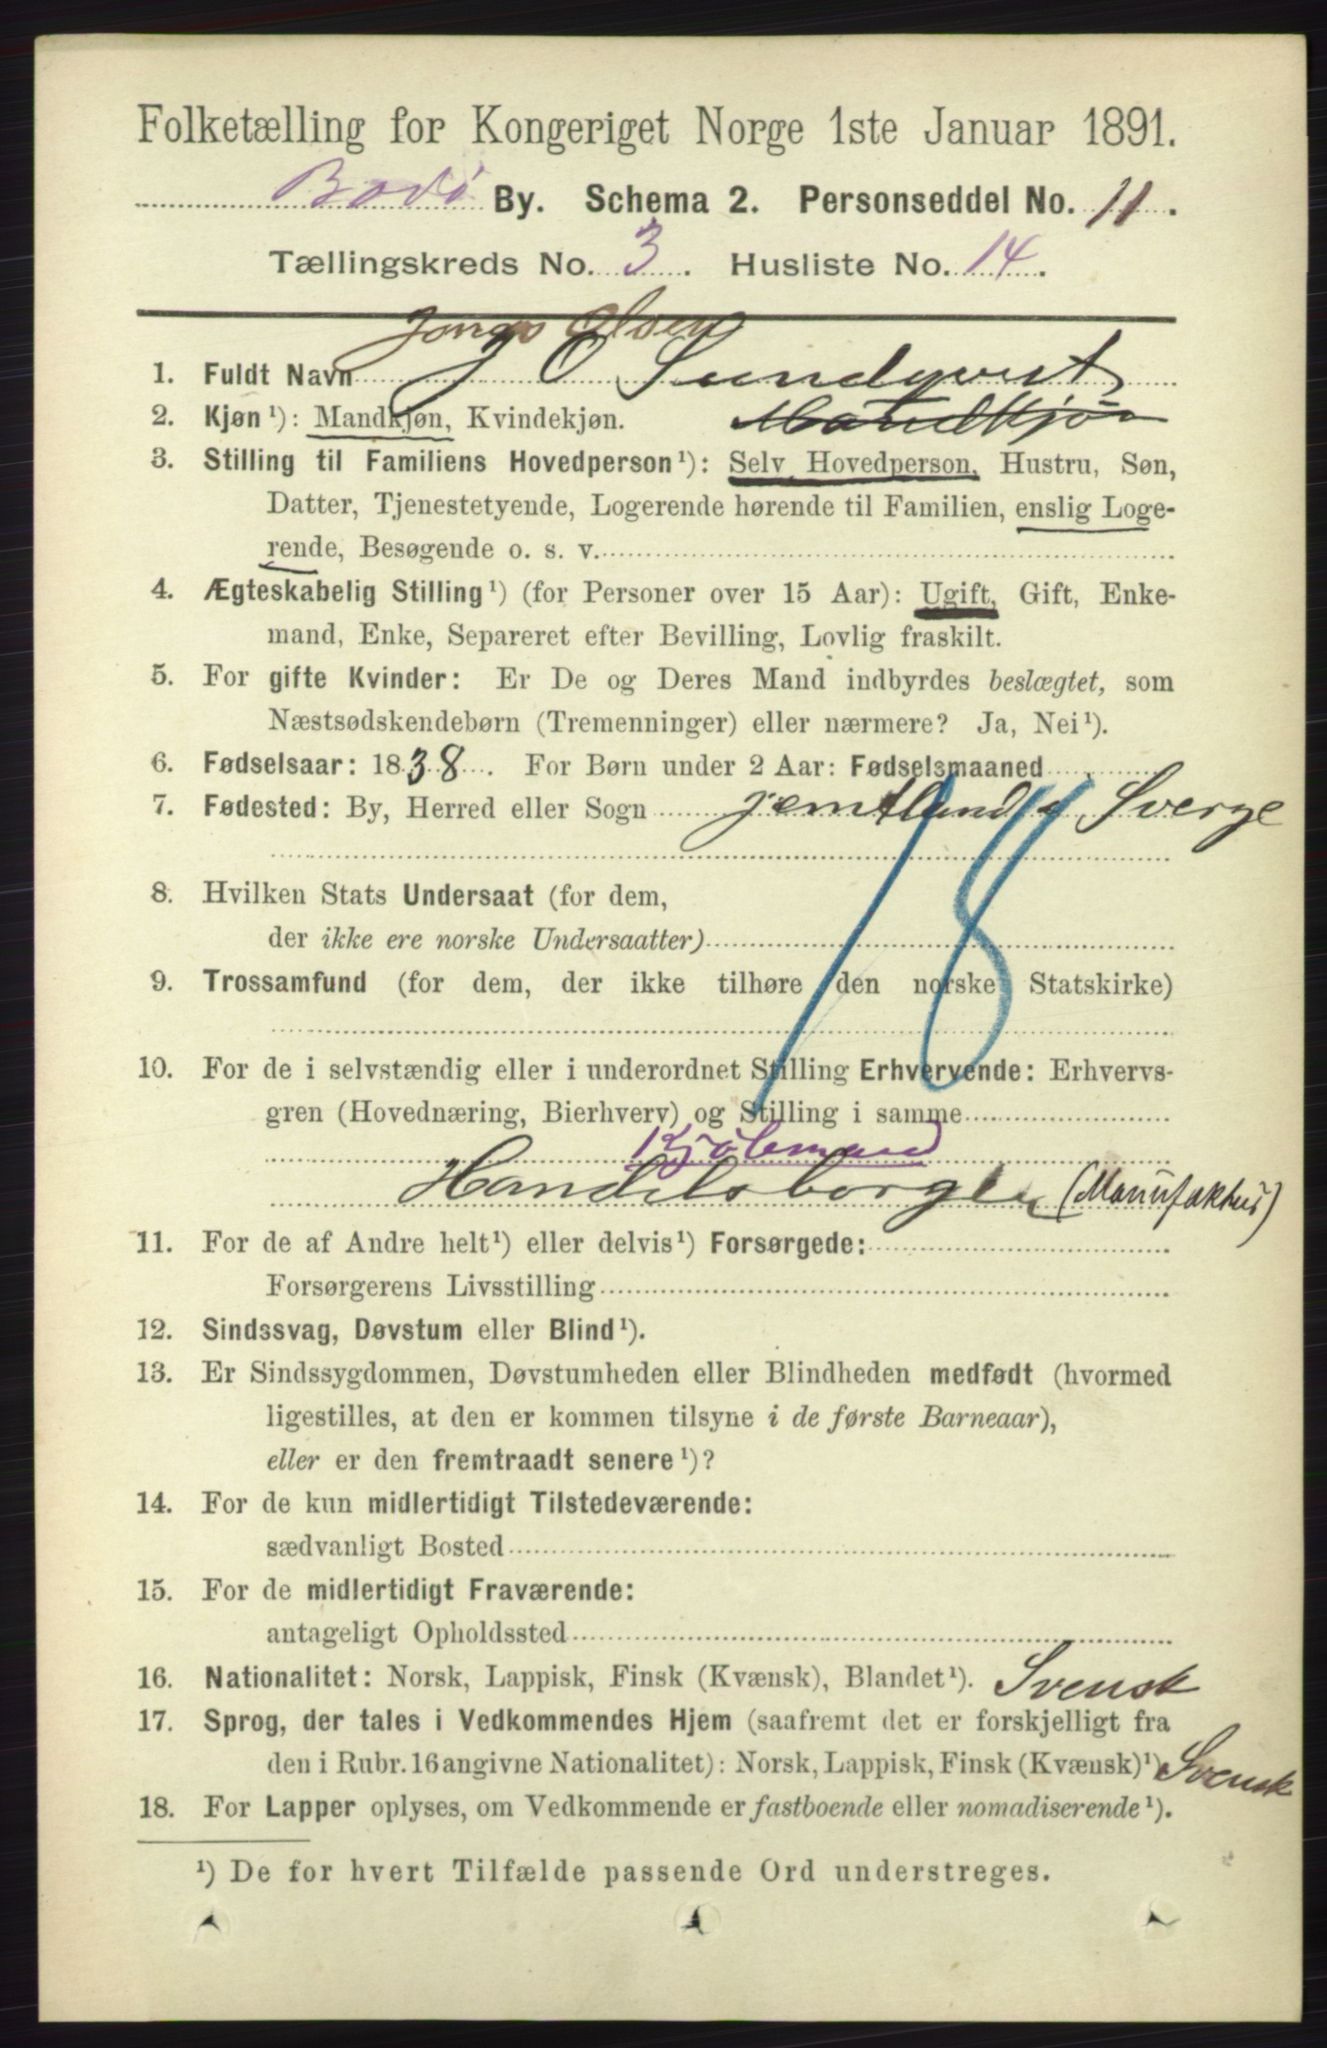 Folketælling for Kongeriget Norge 1ste Januar 1891.
Bodø By. Schema 2. Personseddel No. 11.
Tællingskreds No. 3. Husliste No. 14.
Jonas Olsen
1. Fuldt Navn J O Sundqvist
2. Kjøn¹): Mandkjøn, Kvindekjøn. Mandkjøn
3. Stilling til Familiens Hovedperson¹): Selv Hovedperson, Hustru, Søn,
Datter, Tjenestetyende, Logerende hørende til Familien, enslig Loge-
rende, Besøgende o. s. v.
4. Ægteskabelig Stilling¹) (for Personer over 15 Aar): Ugift, Gift, Enke-
mand, Enke, Separeret efter Bevilling, Lovlig fraskilt.
5. For gifte Kvinder: Er De og Deres Mand indbyrdes beslægtet, som
Næstsødskendebørn (Tremenninger) eller nærmere? Ja, Nei¹).
6. Fødselsaar: 1838. For Børn under 2 Aar: Fødselsmaaned
7. Fødested: By, Herred eller Sogn jemtland Sverge
18
8. Hvilken Stats Undersaat (for dem,
der ikke ere norske Undersaatter)
9. Trossamfund (for dem, der ikke tilhøre den norske Statskirke)
10. For de i selvstændig eller i underordnet Stilling Erhvervende: Erhvervs-
gren (Hovednæring, Bierhverv) og Stilling i samme
Kjøbmand
Handelsborger (Manufaktur)
11. For de af Andre helt¹) eller delvis¹) Forsørgede:
Forsørgerens Livsstilling
12. Sindssvag, Døvstum eller Blind¹).
13. Er Sindssygdommen, Døvstumheden eller Blindheden medfødt (hvormed
ligestilles, at den er kommen tilsyne i de første Barneaar),
eller er den fremtraadt senere¹)?
14. For de kun midlertidigt Tilstedeværende:
sædvanligt Bosted
15. For de midlertidigt Fraværende:
antageligt Opholdssted
16. Nationalitet: Norsk, Lappisk, Finsk (Kvænsk), Blandet¹). Svensk
17. Sprog, der tales i Vedkommendes Hjem (saafremt det er forskjelligt fra
den i Rubr. 16 angivne Nationalitet): Norsk, Lappisk, Finsk (Kvænsk)¹). Svensk
18. For Lapper oplyses, om Vedkommende er fastboende eller nomadiserende¹).
¹) De for hvert Tilfælde passende Ord understreges.